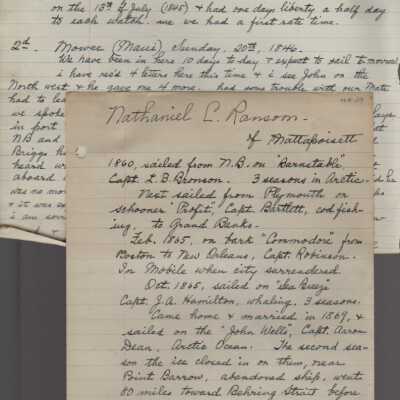 on the 13th of July (1845) & had one days liberty a half day
to each watch. we we had a first rate time.
2d. Mowee (Maui) Sunday, 20th, 1846.
We have been in here 10 days to day & expect to sail to-morrow
i have rec'd 4 letters here this time & i see John on the
North west & he gave me 4 more. had some trouble with our Mate
had to lea
we spoke
in port
NB and
Briggs
heard
aboard
was no mo
& it was
i am sorr
Nathaniel C. Ransom -
of Mattapoisett
1860, sailed from N.B. on "Barnstable",
Capt. L. B. Bronson. 3 seasons in Arctic.
Next sailed from Plymouth on
schooner "Profit," Capt. Bartlett, cod fish-
ing to Grand Banks.
Feb. 1865, on bark "Commodore" from
Boston to New Orleans, Capt. Robinson.
In Mobile when city surrendered.
Oct. 1865, sailed on "Sea Breeze"
Capt. J. A. Hamilton, whaling, 3 seasons.
Came home & married in 1869, &
sailed on the "John Wells", Capt. Aaron
Dean, Arctic Ocean. The second sea-
son the ice closed in on them, near
Point Barrow, abandoned ship, went
80 miles toward Behring Strait before